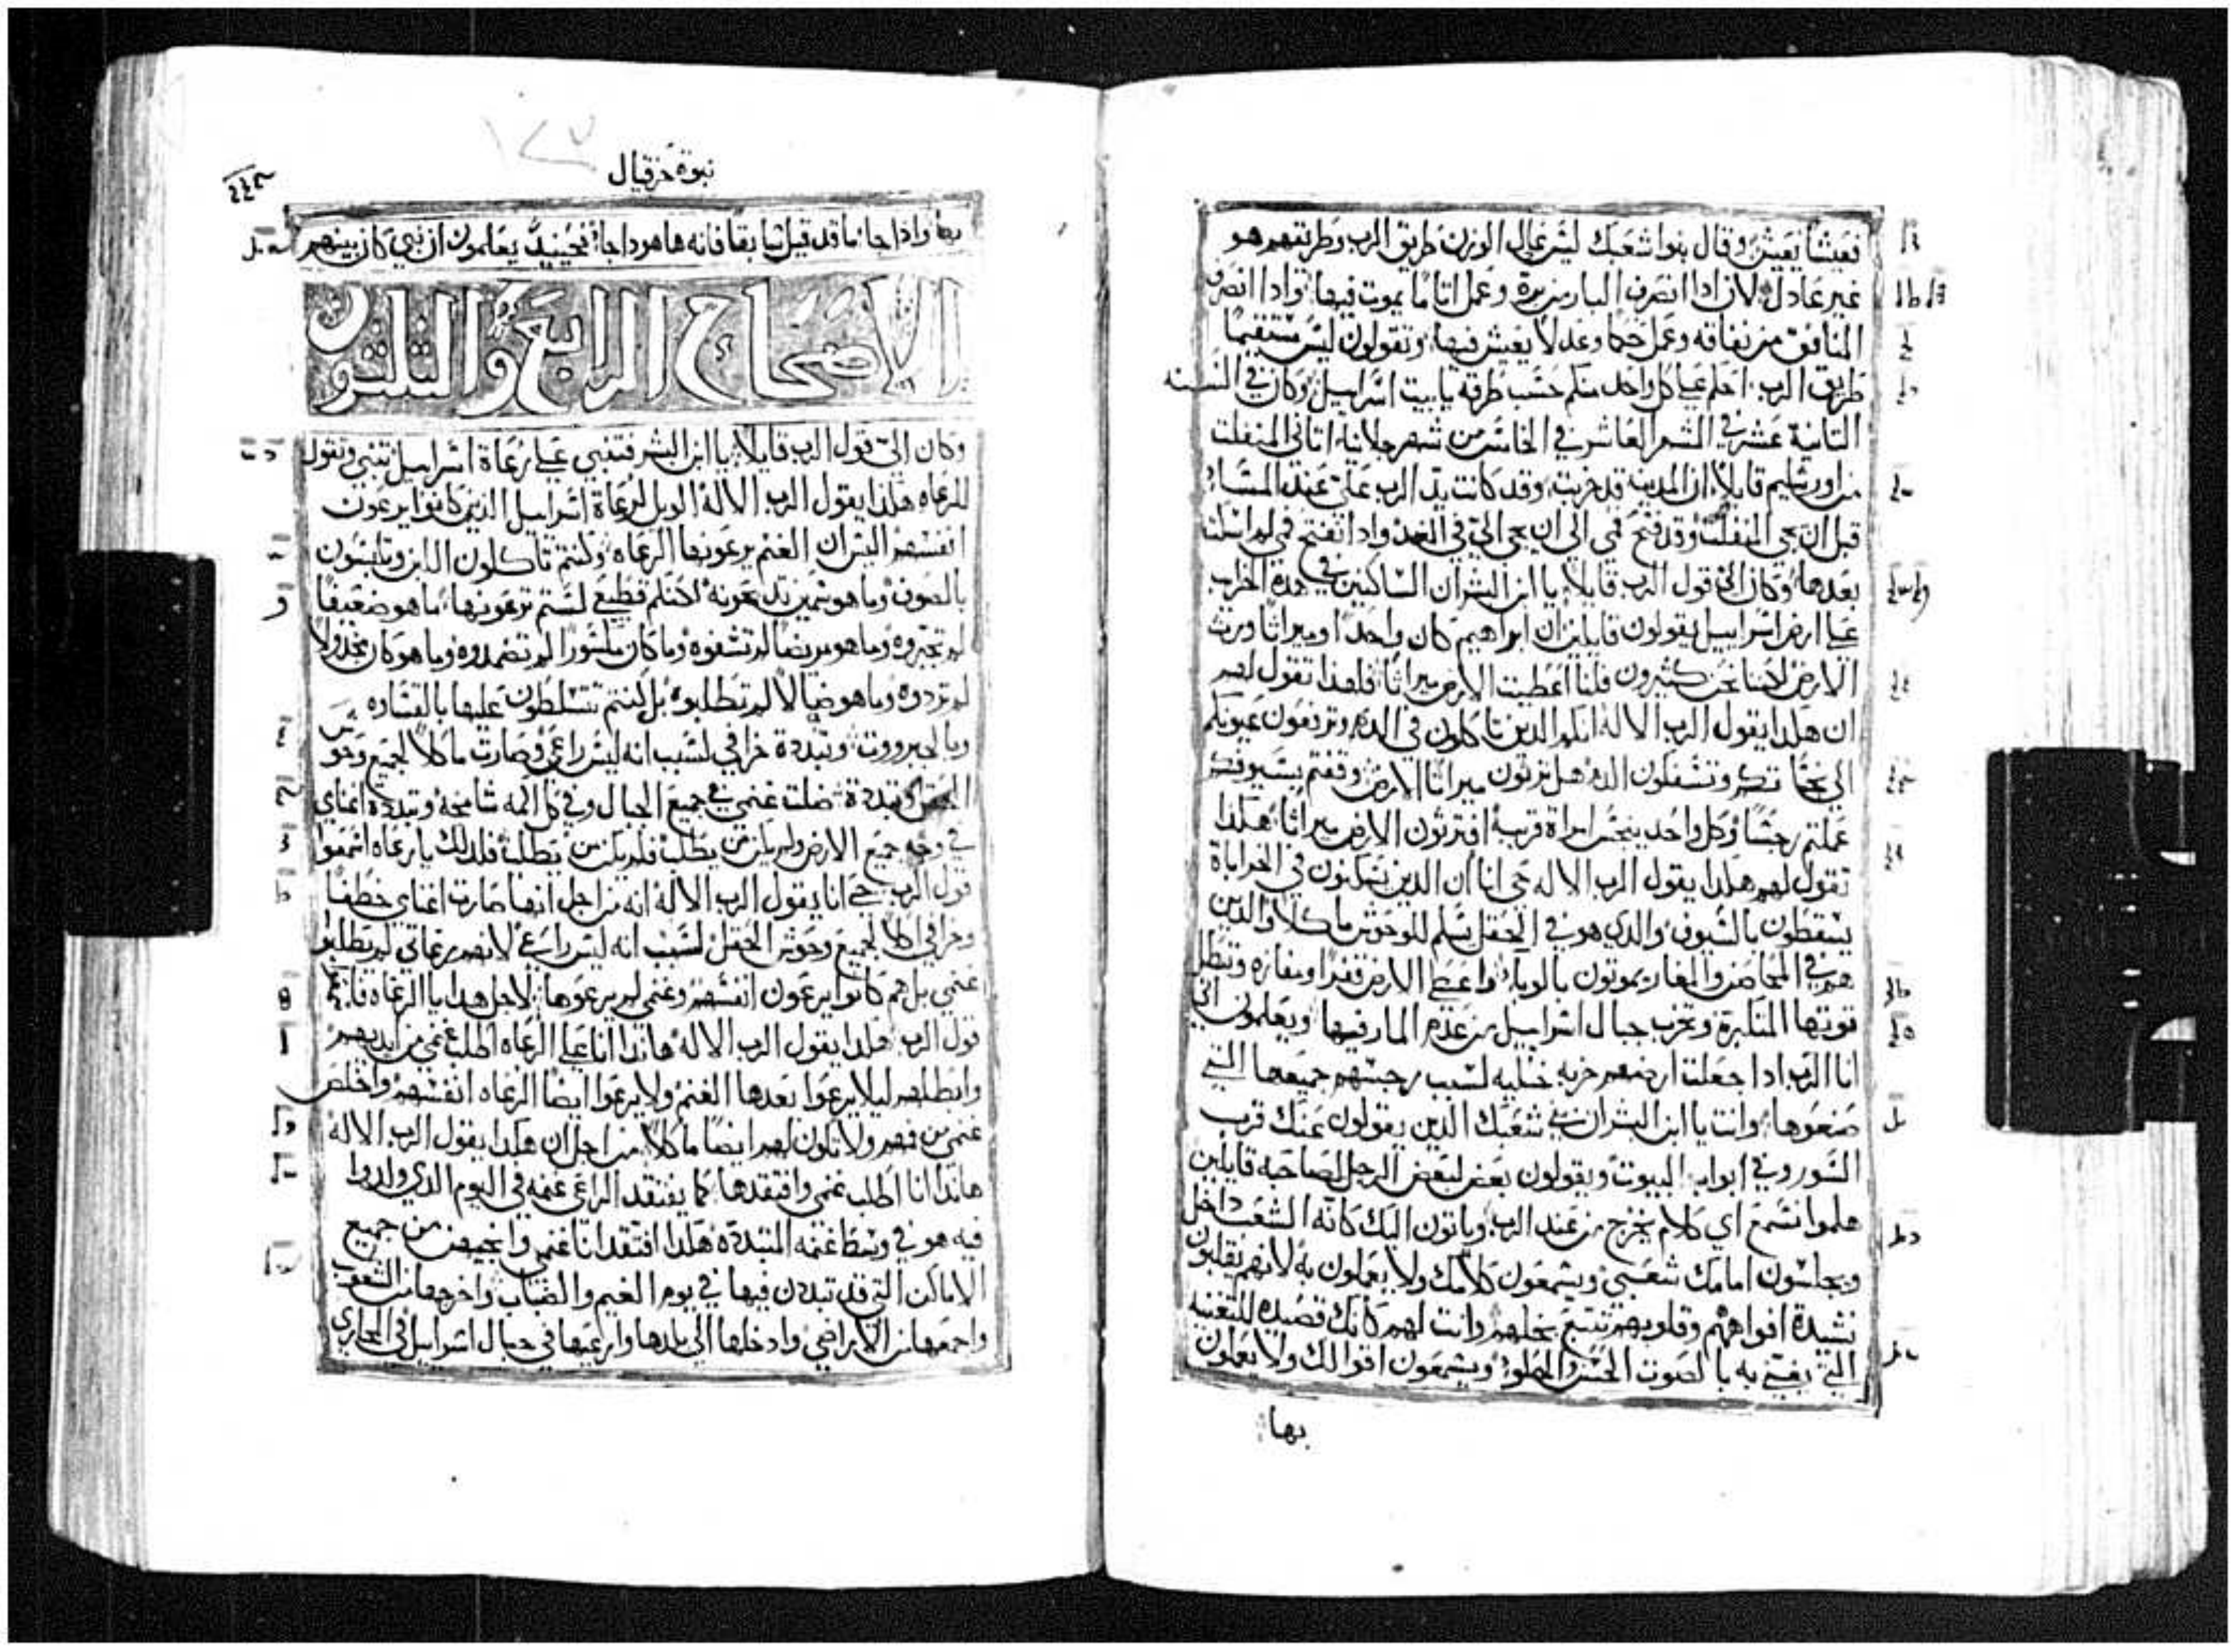 فعيشًا يعيش وقال بنوا شعبك ليس عالي الوزن طريق الرب وطريقهم هو
غير عادل لان ادا انصرف البار من بره وعمل اتامًا يموت فيها وادا انصرف
المنافق من نفاقه وعمل حكمًا وعدلًا يعيش فيها وتقولون ليس مستقيمًا
طريق الرب احكم علي كل واحد منكم حسب طرقه يا بيت اسراييل وكان في السنه
التانية عشر في الشهر العاشر في الخامس من شهر جلانا اتاني المنفلت
من اورشليم قايلًا ان المدينه قد خربت وقد كانت يد الرب علي عند المساء
قبل ان يجي المنفلت وقد فتح فمي الي ان يجي الي في الغد وادا انفتح فمي لم اسكت
بعدها وكان الي قول الرب قايلًا يا ابن البشر ان الساكنين في هده الخرب
علي ارض اسراييل يقولون قايلين ان ابراهيم كان واحدًا وميراثًا ورث
الارض لاكننا نحن كثيرون فلنا اعطيت الارض ميراثًا فلهدا تقول لهم
ان هكدا يقول الرب الالاه انكم الدين تاكلون في الدم وترفعون عيونكم
الي نجاساتكم وتسفكون الدم هل ترثون ميراثًا الارض وقفتم بسيوفكم
عملتم رجسًا وكل واحد ينجس امراة قريبه افترثون الارض ميراثًا هكدا
تقول لهم هكدا يقول الرب الالاه حي انا ان الدين يسكنون في الخراباة
يسقطون بالسيوف والدي هو في الحقل يسلم للوحوش ماكلًا والدين
هم في المحاضر والمغاير يموتون بالوباء واعطي الارض قفرًا ومفازه وتبطل
قوتها المتكبرة وتخرب جبال اسراييل من عدم المار فيها ويعلمون اني
انا الرب ادا جعلت ارضهم خربه خليه لسبب رجسهم جميعها التي
صنعوها وانت يا ابن البشر ان بني شعبك الدين يقولون عنك قرب
السور وفي ابواب البيوت ويقولون بعض لبعض الرجل لصاحبه قايلين
هلموا نسمع اي كلام يخرج من عند الرب وياتون اليك كانه الشعب داخل
ويجلسون امامك شعبي ويسمعون كلامك ولا يعملون به لانهم يقلبون
نشيدة افواههم وقلوبهم تتبع بخلهم وانت لهم كانك قصيده للتغنيه
التي يغني به بالصوت الحسن الحلو ويسمعون اقوالك ولا يعملون
بها
نبوة حزقيال
بها وادا جا ما قد قيل سابقًا فانه ها هودا جاء فحينيد يعلمون ان نبي كان بينهم
الاصحاح الرابع والثلثون
وكان الي قول الرب قايلًا يا ابن البشر فتنبي علي رعاة اسراييل تنبي وتقول
للرعاه هكدا يقول الرب الالاه الويل لرعاة اسراييل الدين كانوا يرعون
انفسهم اليس ان الغنم يرعونها الرعاه وكنتم تاكلون اللبن وتلبسون
بالصوف وما هو سمين تدبحونه لاكنكم قطيعي لستم ترعونها ما هو ضعيفًا
لم تجبروه وما هو مريضًا لم تشفوه وما كان مكسورًا لم تضمدوه وما هو كان مخدولًا
لم تردوه وما هو ضالًا لم تطلبوه بل كنتم تتسلطون عليها بالقساوه
وبالجبرووت وتبددة خرافي لسبب انه ليس راعي وصارت ماكلًا لجميع وحوش
الحقل وتبددة ضلت غنمي في جميع الجبال وفي كل اكمه شامخه وتبددة اغنامي
في وجه جميع الارض ولم يكن من يطلب فلم يكن من يطلب فلدلك يا رعاه اسمعوا
قول الرب حي انا يقول الرب الالاه انه من اجل انها صارت اغنامي خطفًا
وخرافي اكلًا لجميع وحوش الحقل لسبب انه ليس راعي لانهم رعاتي لم يطلبوا
غنمي بل هم كانوا يرعون انفسهم وغنمي لم يرعوها لاجل هدا يا الرعاه
قول الرب هكدا يقول الرب الالاه هاندا انا علي الرعاه اطلب غنمي من ايديهم
وابطلهم ليلا يرعوا بعدها الغنم ولا يرعوا ايضًا الرعاه انفسهم واخلص
غنمي من فمهم ولا تكون لهم ايضًا ماكلًا من اجل ان هكدا يقول الرب الالاه
هاندا انا اطلب غنمي وافتقدها كما يفتقد الراعي غنمه في اليوم الدي
فيه هو في وسط غنمه المتبدده هكدا افتقد انا غنمي من جميع
الاماكن التي قد تبددن فيها في يوم الغيم والضباب واخرجها من الشعوب
واجمعها من الاراضي وادخلها الي بلدها وارعيها في جبال اسراييل في المجاري